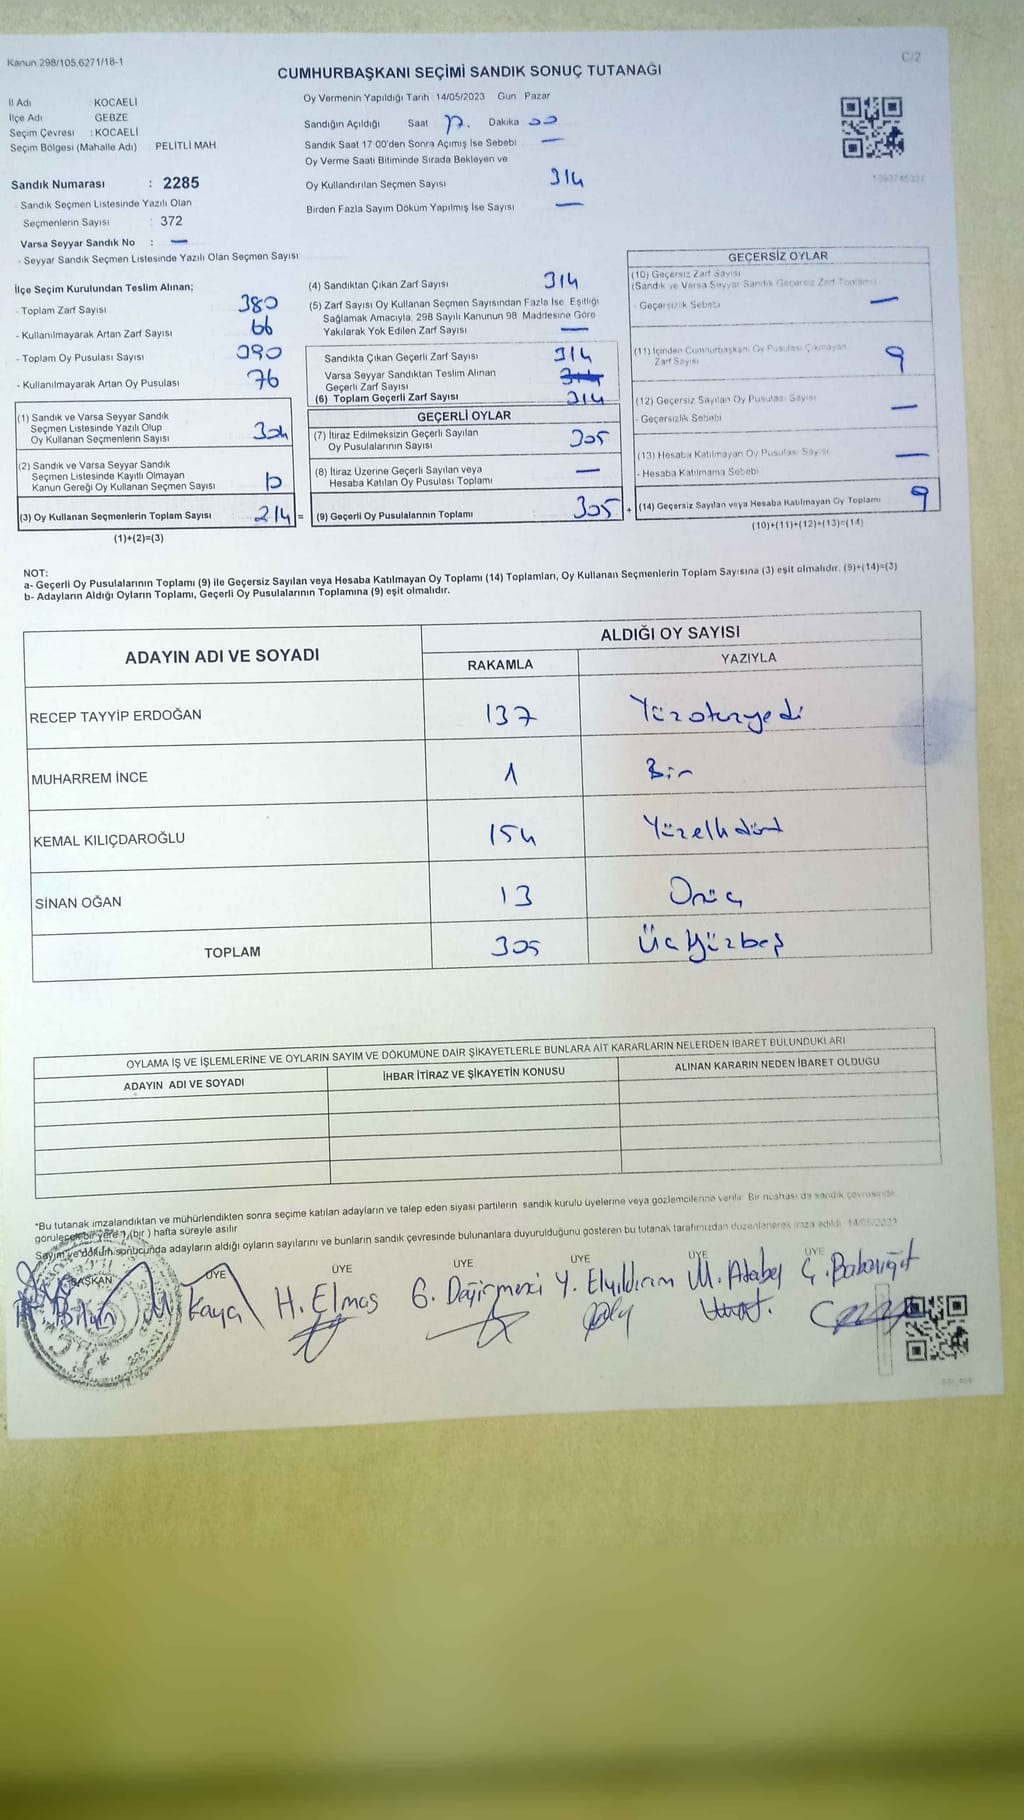 Kanun 298/105,6271/18-1
C/2
CUMHURBAŞKANI SEÇİMİ SANDIK SONUÇ TUTANAĞI
İl Adı KOCAELİ
İlçe Adı GEBZE
Seçim Çevresi : KOCAELİ
Seçim Bölgesi (Mahalle Adı) PELİTLİ MAH
Sandık Numarası : 2285
Sandık Seçmen Listesinde Yazılı Olan
Seçmenlerin Sayısı : 372
Varsa Seyyar Sandık No : —
- Seyyar Sandık Seçmen Listesinde Yazılı Olan Seçmen Sayısı
Oy Vermenin Yapıldığı Tarih 14/05/2023 Gün Pazar
Sandığın Açıldığı Saat 17. Dakika 00
Sandık Saat 17 00'den Sonra Açımış İse Sebebi —
Oy Verme Saati Bitiminde Sırada Bekleyen ve
Oy Kullandırılan Seçmen Sayısı 314
Birden Fazla Sayım Döküm Yapılmış İse Sayısı —
İlçe Seçim Kurulundan Teslim Alınan;
- Toplam Zarf Sayısı 380
- Kullanılmayarak Artan Zarf Sayısı 66
- Toplam Oy Pusulası Sayısı 390
- Kullanılmayarak Artan Oy Pusulası 76
(1) Sandık ve Varsa Seyyar Sandık
Seçmen Listesinde Yazılı Olup
Oy Kullanan Seçmenlerin Sayısı 304
(2) Sandık ve Varsa Seyyar Sandık
Seçmen Listesinde Kayıtlı Olmayan
Kanun Gereği Oy Kullanan Seçmen Sayısı
(3) Oy Kullanan Seçmenlerin Toplam Sayısı 214 =
(1)+(2)=(3)
(4) Sandıktan Çıkan Zarf Sayısı 314
(5) Zarf Sayısı Oy Kullanan Seçmen Sayısından Fazla İse Eşitliği
Sağlamak Amacıyla, 298 Sayılı Kanunun 98. Maddesine Göre
Yakılarak Yok Edilen Zarf Sayısı —
Sandıkta Çıkan Geçerli Zarf Sayısı 314
Varsa Seyyar Sandıktan Teslim Alınan
Geçerli Zarf Sayısı
(6) Toplam Geçerli Zarf Sayısı 314
GEÇERLİ OYLAR
(7) İtiraz Edilmeksizin Geçerli Sayılan
Oy Pusulalarının Sayısı 305
(8) İtiraz Üzerine Geçerli Sayılan veya
Hesaba Katılan Oy Pusulası Toplamı —
(9) Geçerli Oy Pusulalarının Toplamı 305 +
GEÇERSİZ OYLAR
(10) Geçersiz Zarf Sayısı
(Sandık ve Varsa Seyyar Sandık Geçersiz Zarf Toplamı)
- Geçersizlik Sebebi —
(11) İçinden Cumhurbaşkanı Oy Pusulası Çıkmayan
Zarf Sayısı 9
(12) Geçersiz Sayılan Oy Pusulası Sayısı
- Geçersizlik Sebebi —
(13) Hesaba Katılmayan Oy Pusulası Sayısı
- Hesaba Katılmama Sebebi —
(14) Geçersiz Sayılan veya Hesaba Katılmayan Oy Toplamı 9
(10)+(11)+(12)+(13)=(14)
NOT:
a- Geçerli Oy Pusulalarının Toplamı (9) ile Geçersiz Sayılan veya Hesaba Katılmayan Oy Toplamı (14) Toplamları, Oy Kullanan Seçmenlerin Toplam Sayısına (3) eşit olmalıdır. (9)+(14)=(3)
b- Adayların Aldığı Oyların Toplamı, Geçerli Oy Pusulalarının Toplamına (9) eşit olmalıdır.
ADAYIN ADI VE SOYADI ALDIĞI OY SAYISI
RAKAMLA YAZIYLA
RECEP TAYYİP ERDOĞAN 137 Yüzotuzyedi
MUHARREM İNCE 1 Bir
KEMAL KILIÇDAROĞLU 154 Yüzellidört
SİNAN OĞAN 13 Onüç
TOPLAM 305 Üçyüzbeş
OYLAMA İŞ VE İŞLEMLERİNE VE OYLARIN SAYIM VE DÖKÜMÜNE DAİR ŞİKAYETLERLE BUNLARA AİT KARARLARIN NELERDEN İBARET BULUNDUKLARI
ADAYIN ADI VE SOYADI İHBAR İTİRAZ VE ŞİKAYETİN KONUSU ALINAN KARARIN NEDEN İBARET OLDUĞU
*Bu tutanak imzalandıktan ve mühürlendikten sonra seçime katılan adayların ve talep eden siyasi partilerin sandık kurulu üyelerine veya gözlemcilerine verilir. Bir nüshası da sandık çevresinde
görülecek bir yere 1 (bir ) hafta süreyle asılır
Sayım ve döküm sonucunda adayların aldığı oyların sayılarını ve bunların sandık çevresinde bulunanlara duyurulduğunu gösteren bu tutanak tarafımızdan düzenlenerek imza edildi. 14/05/2023
BAŞKAN ÜYE ÜYE ÜYE ÜYE ÜYE ÜYE
M. Kaya H. Elmas G. Değirmenci Y. Elyıldırım M. Adabey